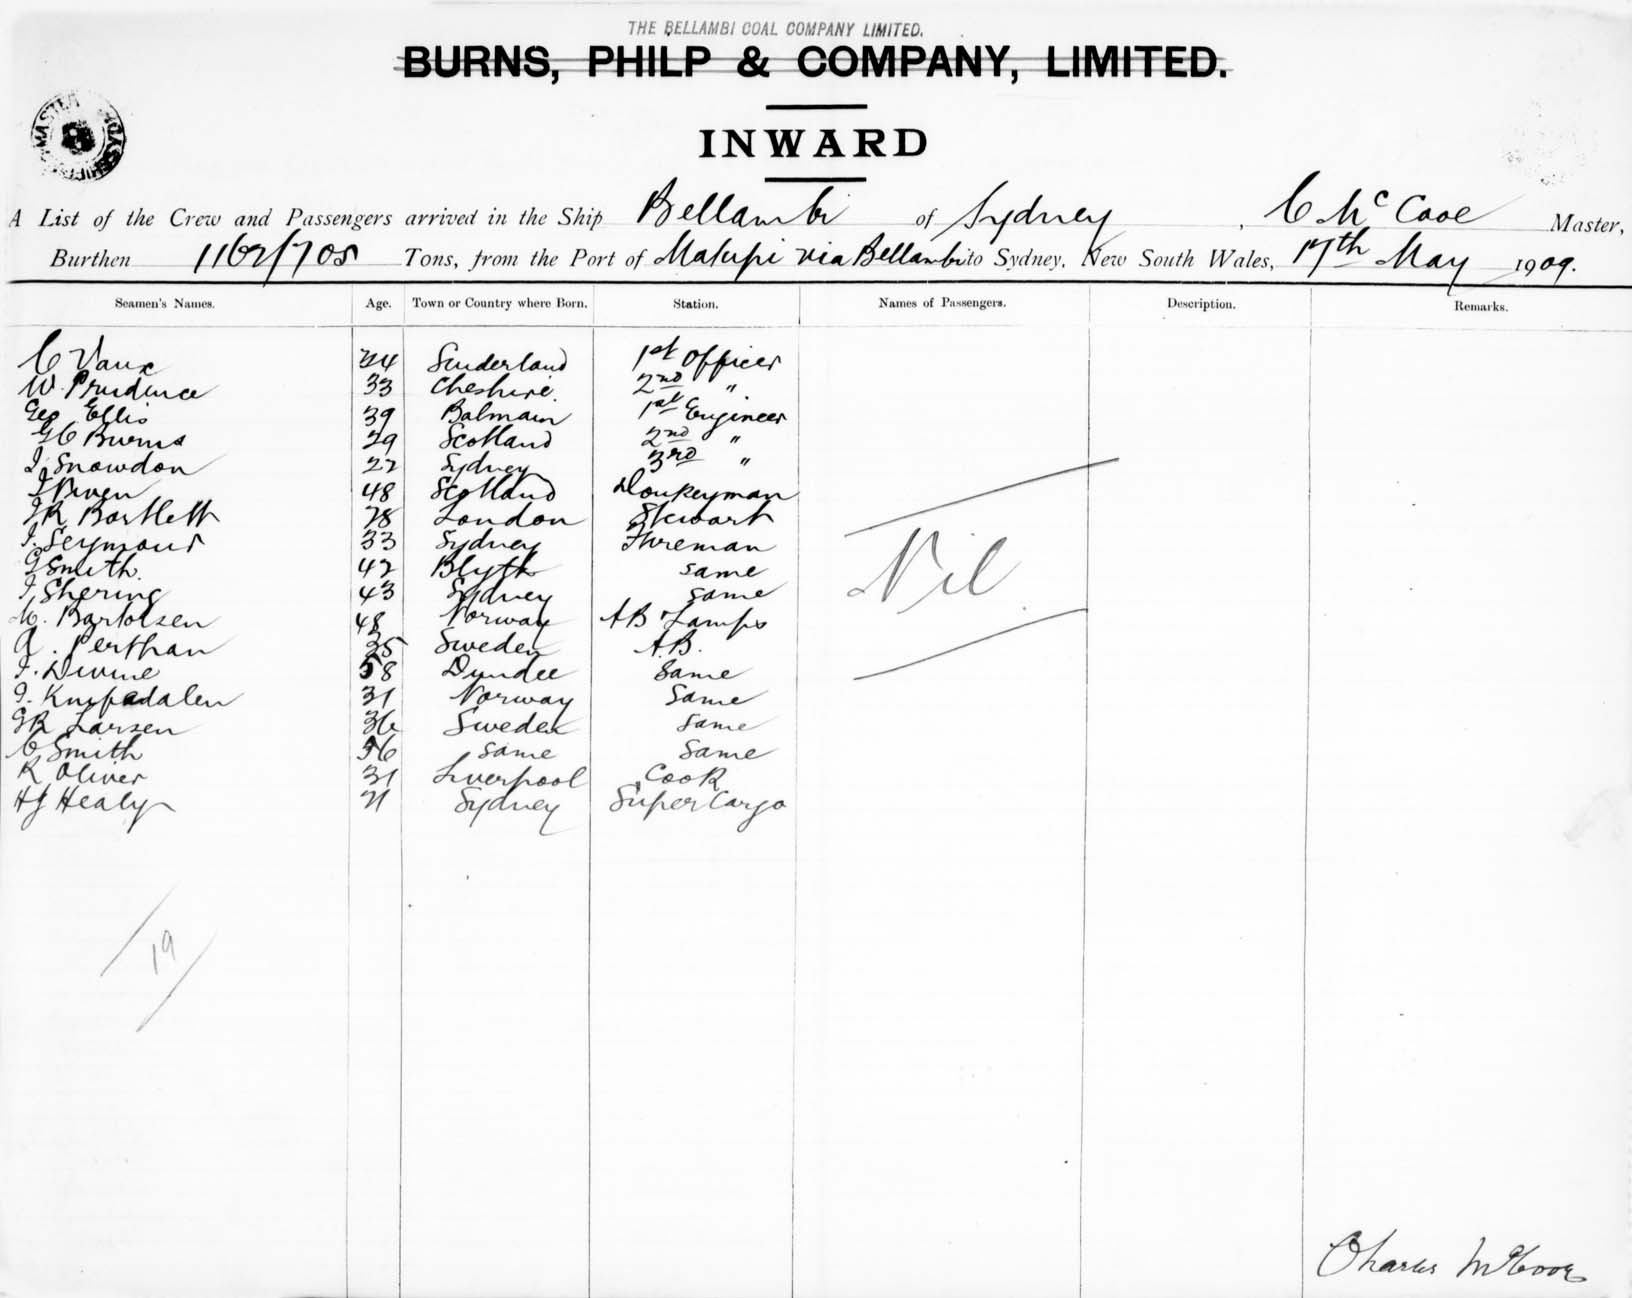 THE BELLAMBI COAL COMPANY LIMITED.
BURNS, PHILP & COMPANY, LIMITED.
INWARD
A List of the Crew and Passengers arrived in the Ship Bellambi of Sydney, C McCooe Master,
Burthen 1162/705 Tons, from the Port of Matupi via Bellambi to Sydney, New South Wales, 17th May 1909.
Seamen's Names. Age. Town or Country where Born. Station. Names of Passengers. Description. Remarks.
C Vaux 44 Sunderland 1st Officer
W. Prudence 33 Cheshire. 2nd "
Geo Ellis 39 Balmain 1st Engineer
G C Burns 29 Scotland 2nd "
J Snowdon 22 Sydney 3rd "
J 48 Scotland Donkeyman
J R Bartlett 28 London Stewart
J. Seymour 33 Sydney Fireman
G Smith. 42 Blyth same
J Shering 43 Sydney same
Bartolsen 48 Norway AB Lamps
A. Perthan 35 Sweden A.B.
J. Divine 58 Dundee Same
J. Knipadalen 31 Norway Same
G R Larsen 36 Sweden same
C Smith 56 same same
R Oliver 31 Liverpool Cook
H J Healy 21 Sydney Super Cargo
Nil
19
Charles McCooe